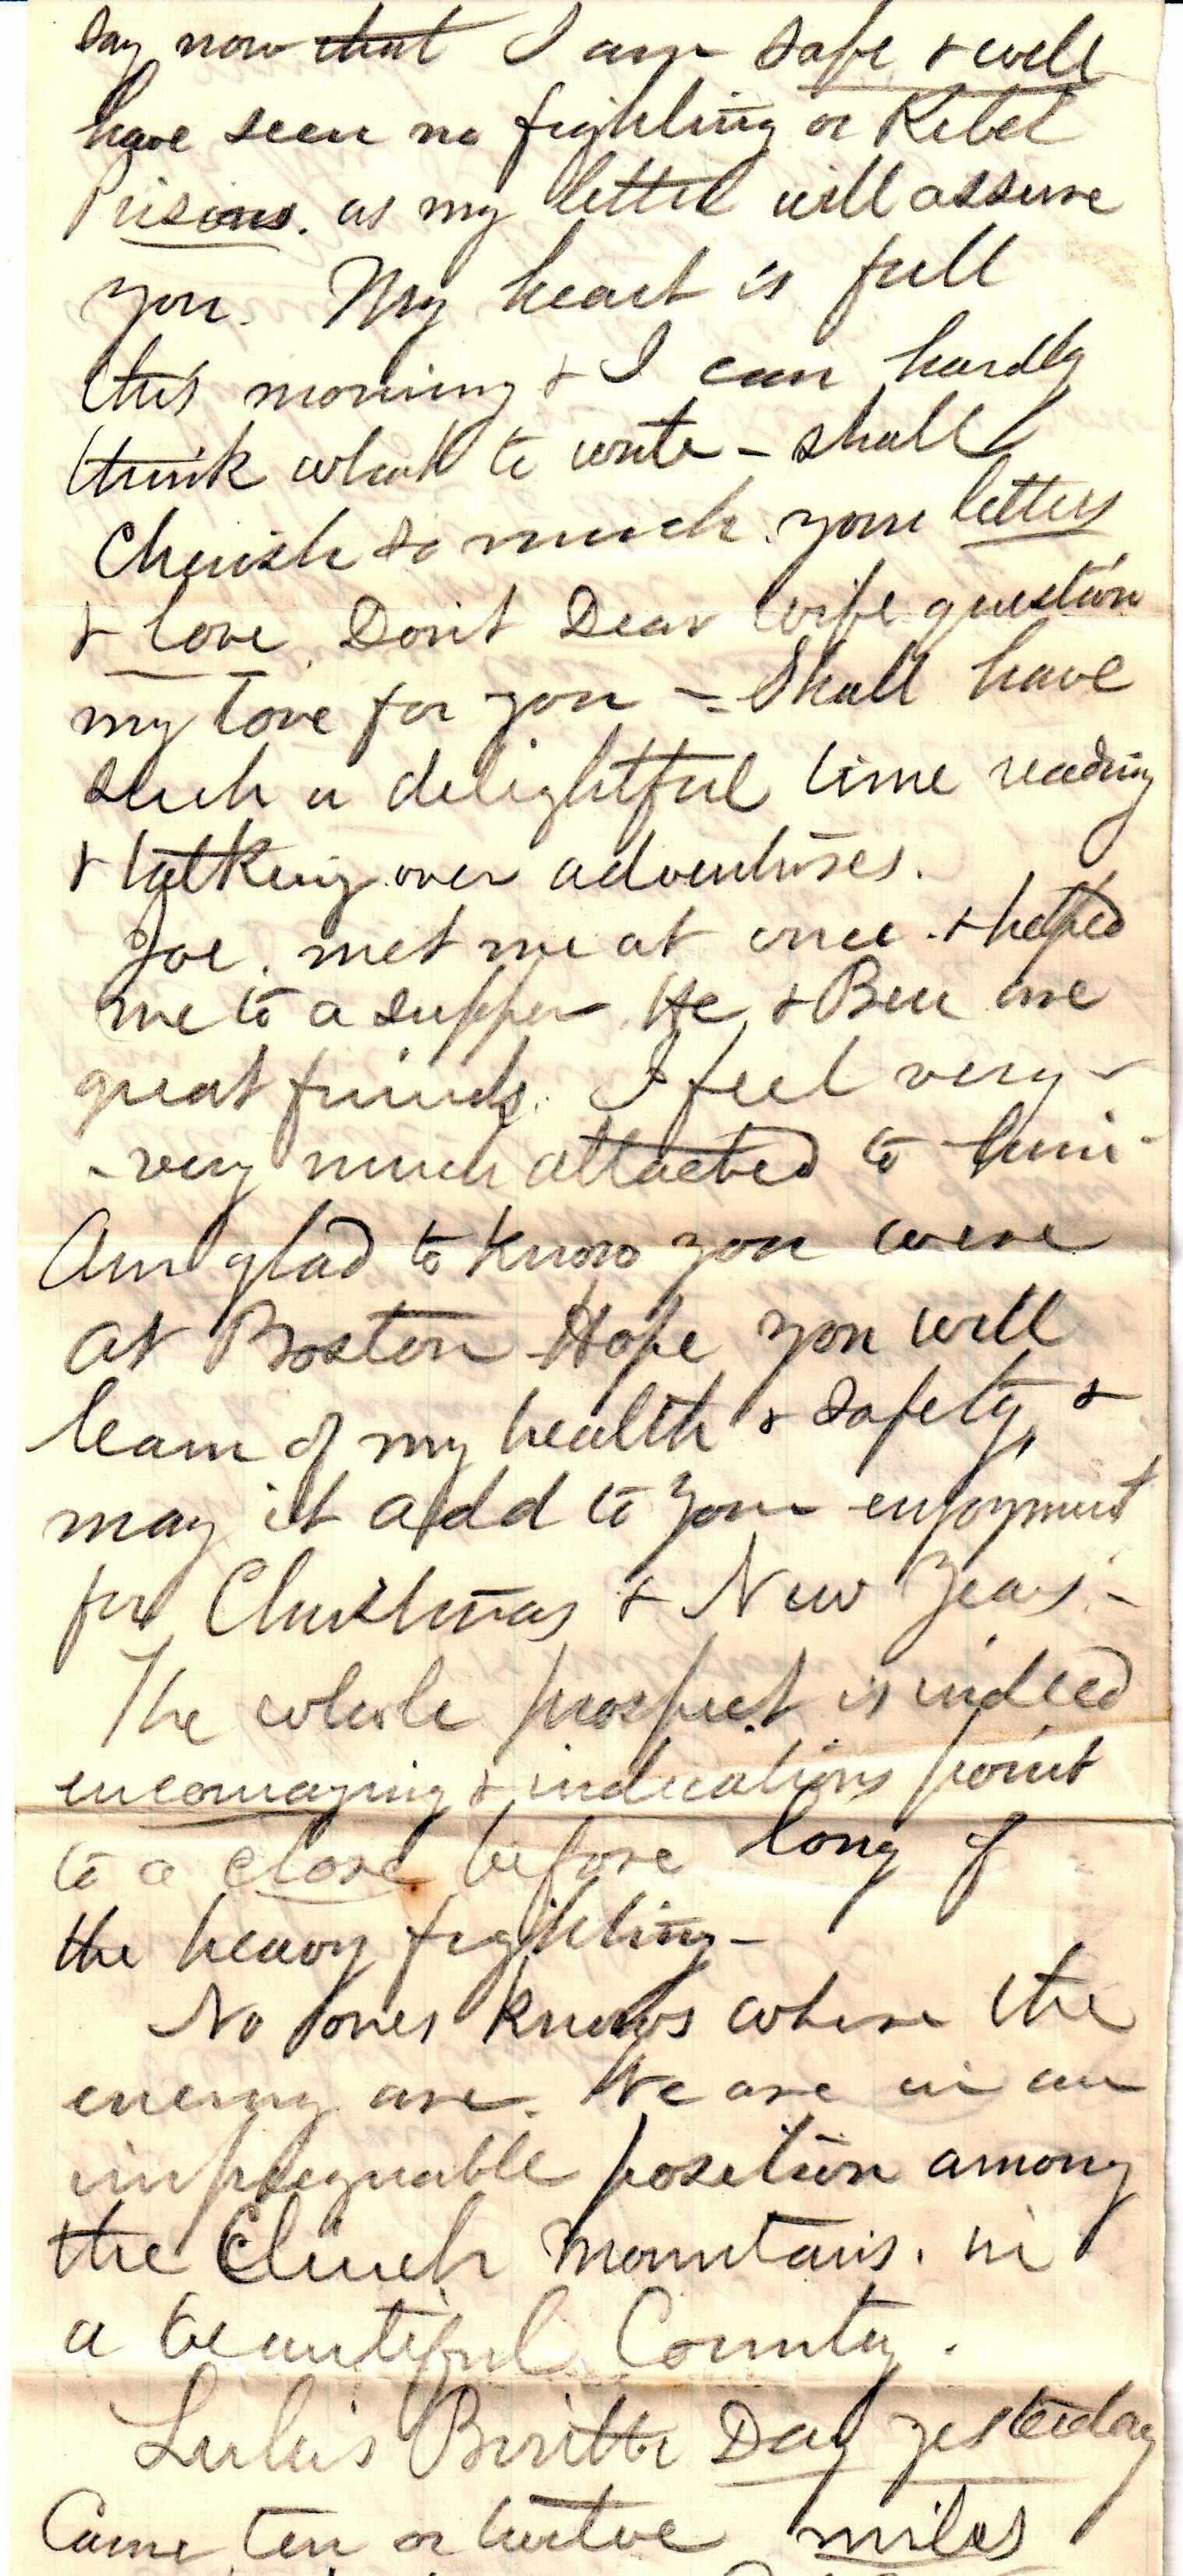 say now that I am safe & well
have seen no fighting or Rebel
Prisons. as my letter will assure
you. My heart is full
this morning & I can hardly
think what to write - shall
Cherish so much your letters
& love. Don't Dear wife question
my love for you - Shall have
such a delightful time reading
& talking over adventures.
Joe. met me at once. & helped
me to a supper. He & Ben are
great friends. I feel very -
- very much attached to him -
Am glad to know you were
at Boston - Hope you will
learn of my health & safety, &
may it add to your enjoyment
for Christmas & New Years. -
The whole prospect is indeed
encouraging & indications point
to a close before long of
the heavy fighting -
No ones knows where the
enemy are. We are in an
impregnable position among
the Clinch Mountains. in
a beautiful Country.
Lulu's Birth Day yesterday
Came ten or twelve miles